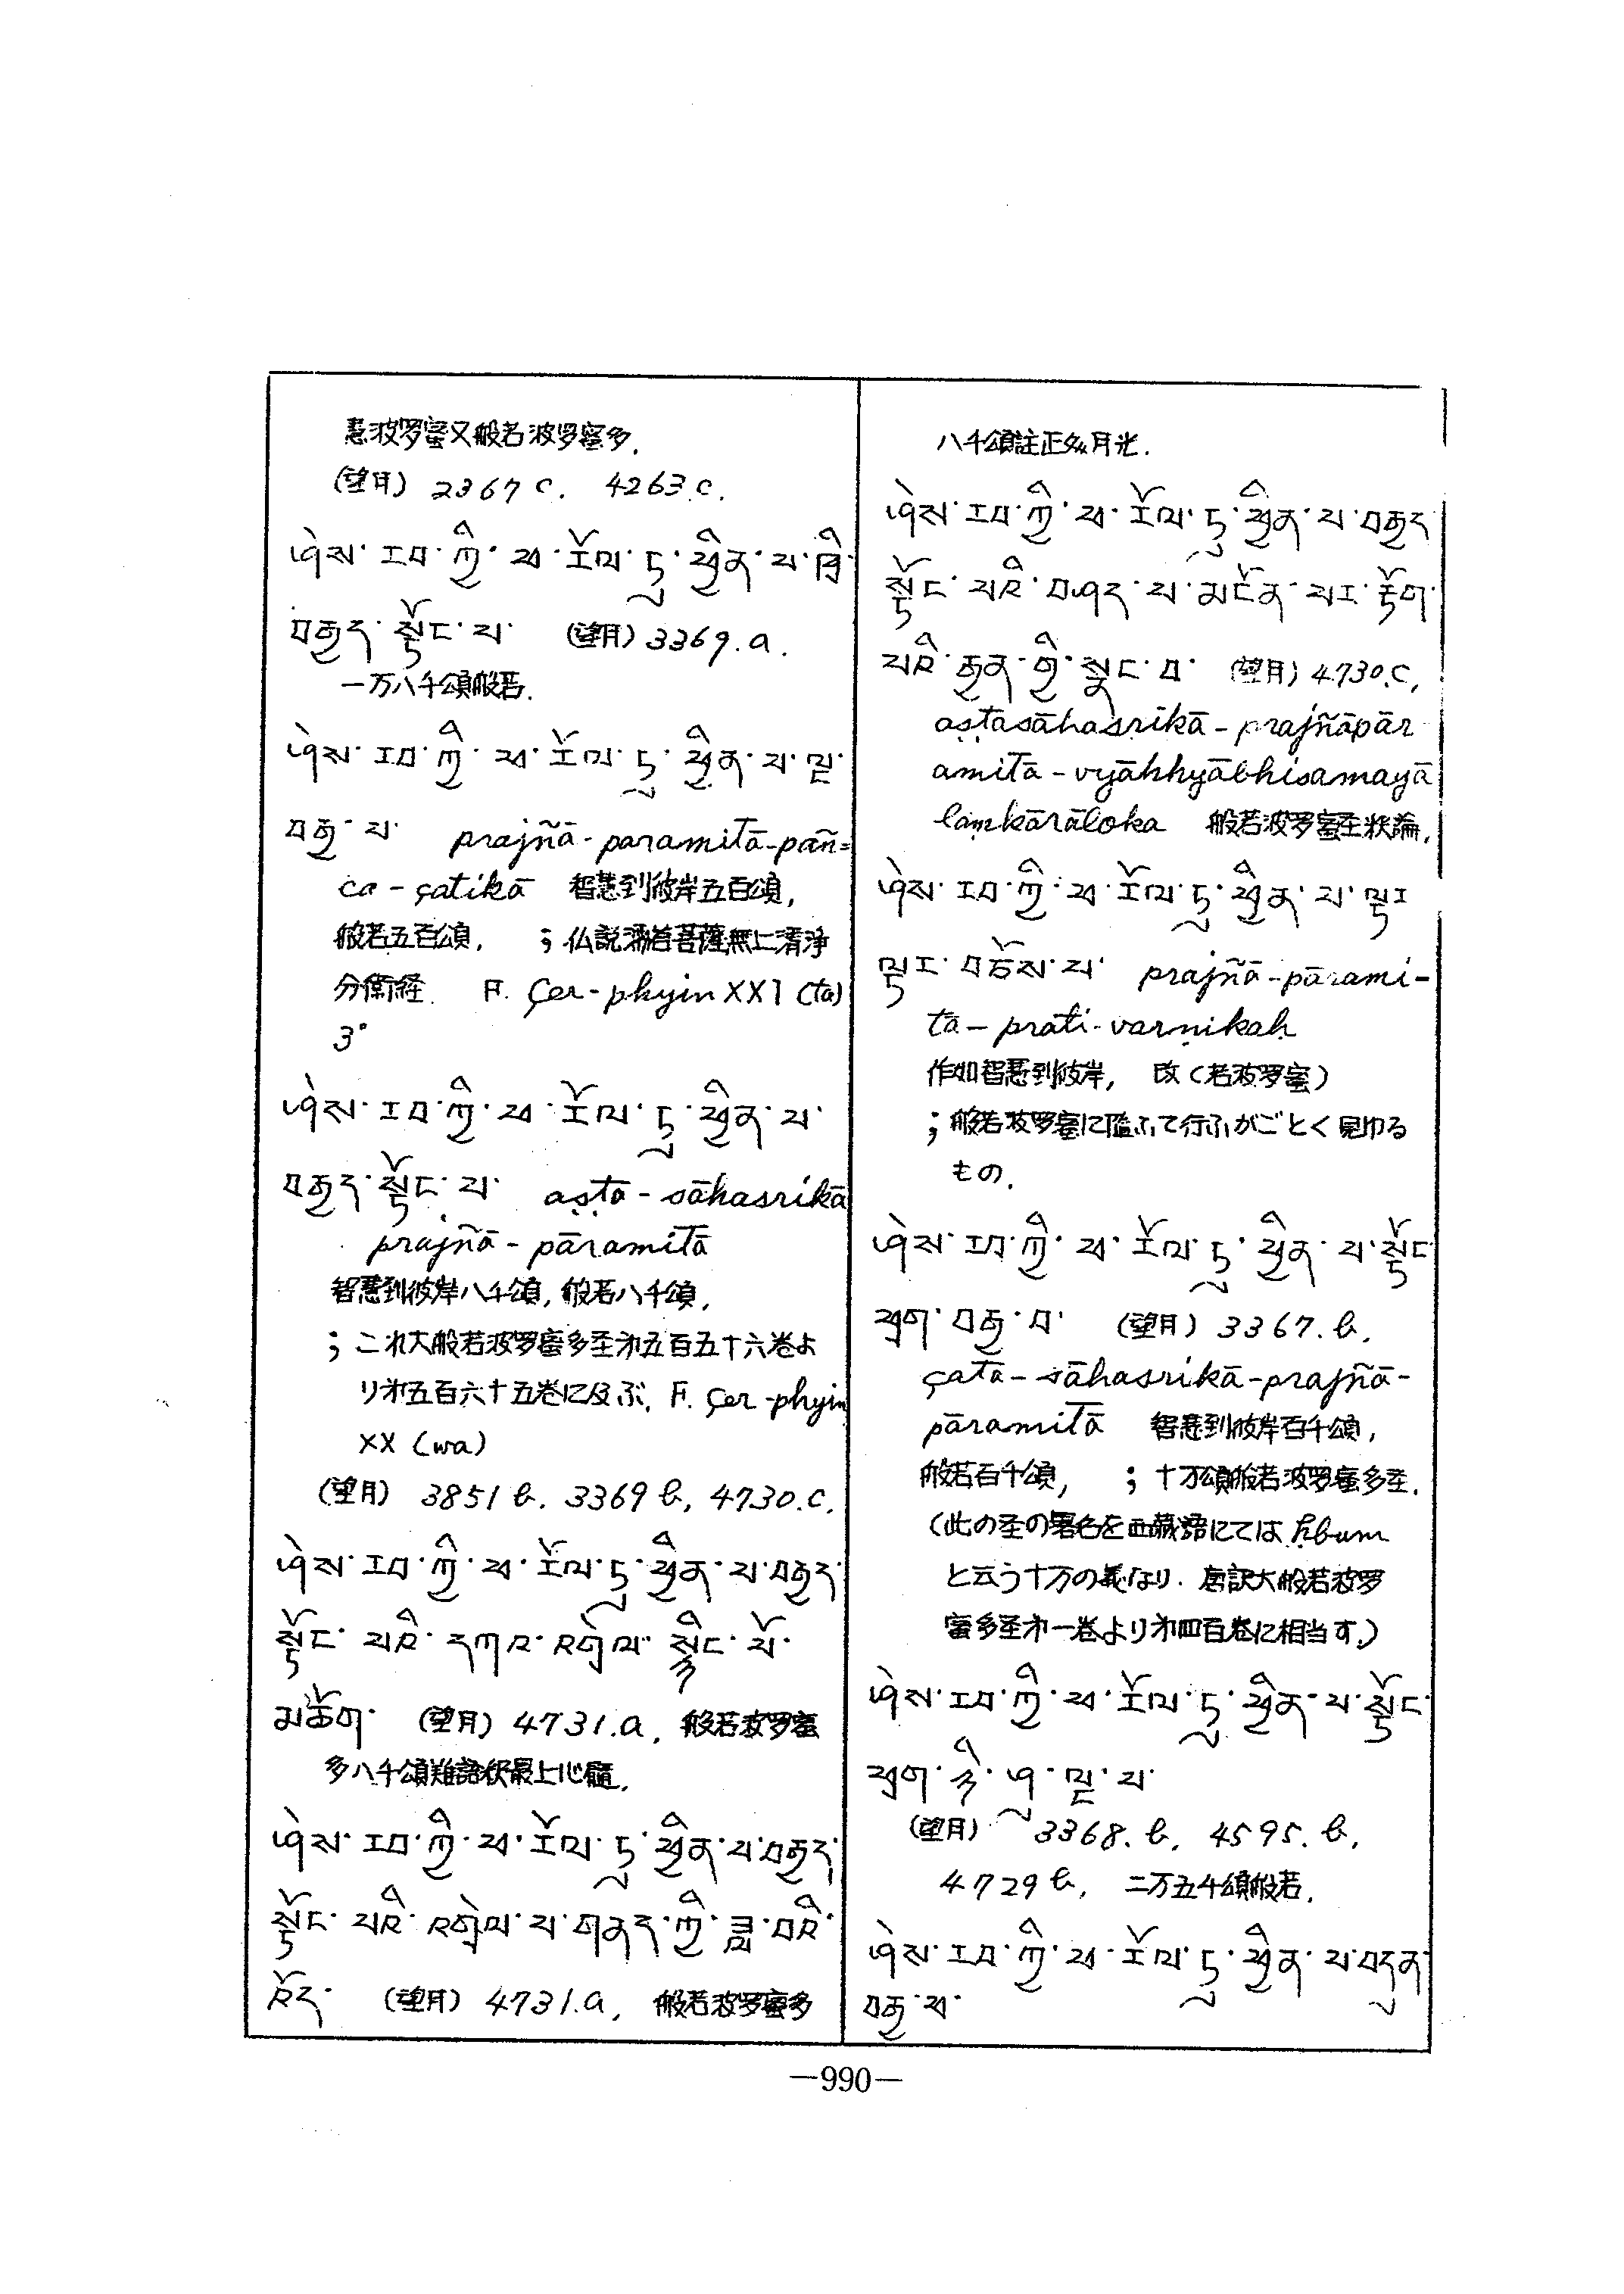 慧波罗蜜又般若波罗蜜多.
(望月) 2367 c. 4263.c.
ཤེས་རབ་ཀྱི་ཕ་རོལ་ཏུ་ཕྱིན་པ་ཁྲི་
བརྒྱད་སྟོང་པ་ (望月) 3369.a.
一万八千頌般若.
ཤེས་རབ་ཀྱི་ཕ་རོལ་ཏུ་ཕྱིན་པ་ལྔ་
བརྒྱ་པ་ prajñā-paramitā-pañ=
ca-çatikā 智慧到彼岸五百頌,
般若五百頌, ; 仏説濡首菩薩無上清浄
分衛経. F. Çer-phyin XXI (ta)
3°
ཤེས་རབ་ཀྱི་ཕ་རོལ་ཏུ་ཕྱིན་པ་
བརྒྱད་སྟོང་པ་ aṣṭa-sāhasrikā
prajñā-pāramitā
智慧到彼岸八千頌, 般若八千頌,
; これ大般若波罗蜜多圣第五百五十六卷よ
り第五百六十五卷に及ぶ, F. Çer-phyin
XX (wa)
(望月) 3851 b. 3369 b, 4730.c.
ཤེས་རབ་ཀྱི་ཕ་རོལ་ཏུ་ཕྱིན་པ་བརྒྱད་
སྟོང་པའི་དཀའ་འགྲེལ་སྙིང་པོ་
མཆོག་ (望月) 4731.a, 般若波罗蜜
多八千頌難語釈最上心髄.
ཤེས་རབ་ཀྱི་ཕ་རོལ་ཏུ་ཕྱིན་པ་བརྒྱད་
སྟོང་པའི་འགྲེལ་པ་གནད་ཀྱི་ཟླ་བའི་
འོད་ (望月) 4731.a, 般若波罗蜜多
八千頌註正㸚月光.
ཤེས་རབ་ཀྱི་ཕ་རོལ་ཏུ་ཕྱིན་པ་བརྒྱད་
སྟོང་པའི་བཤད་པ་མངོན་པར་རྟོག་
པའི་རྒྱན་གྱི་སྣང་བ་ (望月) 4730.c,
aṣṭasāhasrikā-prajñāpār
amitā-vyākhyābhisamayā
laṃkārāloka 般若波罗蜜圣釈論,
ཤེས་རབ་ཀྱི་ཕ་རོལ་ཏུ་ཕྱིན་པ་ལྟར་
ལྟར་བཅོས་པ་ prajñā-pārami-
tā-prati-varṇikaḥ
作如智慧到彼岸, 改(若波罗蜜)
; 般若波罗蜜に随ふて行ふがごとく見ゆる
もの.
ཤེས་རབ་ཀྱི་ཕ་རོལ་ཏུ་ཕྱིན་པ་སྟོང་
ཕྲག་བརྒྱ་པ་ (望月) 3367.b.
çata-sāhasrikā-prajñā-
pāramitā 智慧到彼岸百千頌,
般若百千頌, ; 十万頌般若波罗蜜多圣.
(此の圣の署名を西蔵語にてはḥbum
と云う十万の義なり. 唐訳大般若波罗
蜜多圣第一卷より第四百卷に相当す.)
ཤེས་རབ་ཀྱི་ཕ་རོལ་ཏུ་ཕྱིན་པ་སྟོང་
ཕྲག་ཉི་ཤུ་ལྔ་པ་
(望月) 3368.b, 4595.b,
4729 b, 二万五千頌般若.
ཤེས་རབ་ཀྱི་ཕ་རོལ་ཏུ་ཕྱིན་པ་བདུན་
བརྒྱ་པ་
—990—